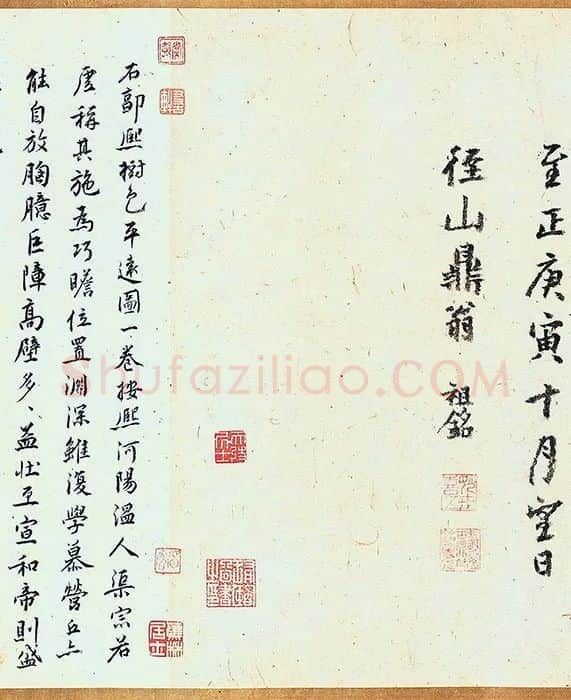 至正庚寅十月望日
徑山鼎翁 祖銘
石郭熙樹色平遠圖一卷按熙河陽溫人渠宗若
虛稱其施為巧贍位置淵深雖復學慕營丘亦
能自放胸臆巨障高壁多多益壯至宣和帝則盛
Shufaziliao.COM